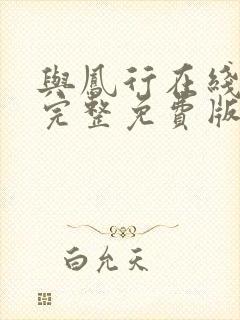 與鳳行在綫
完整免費版
白允天